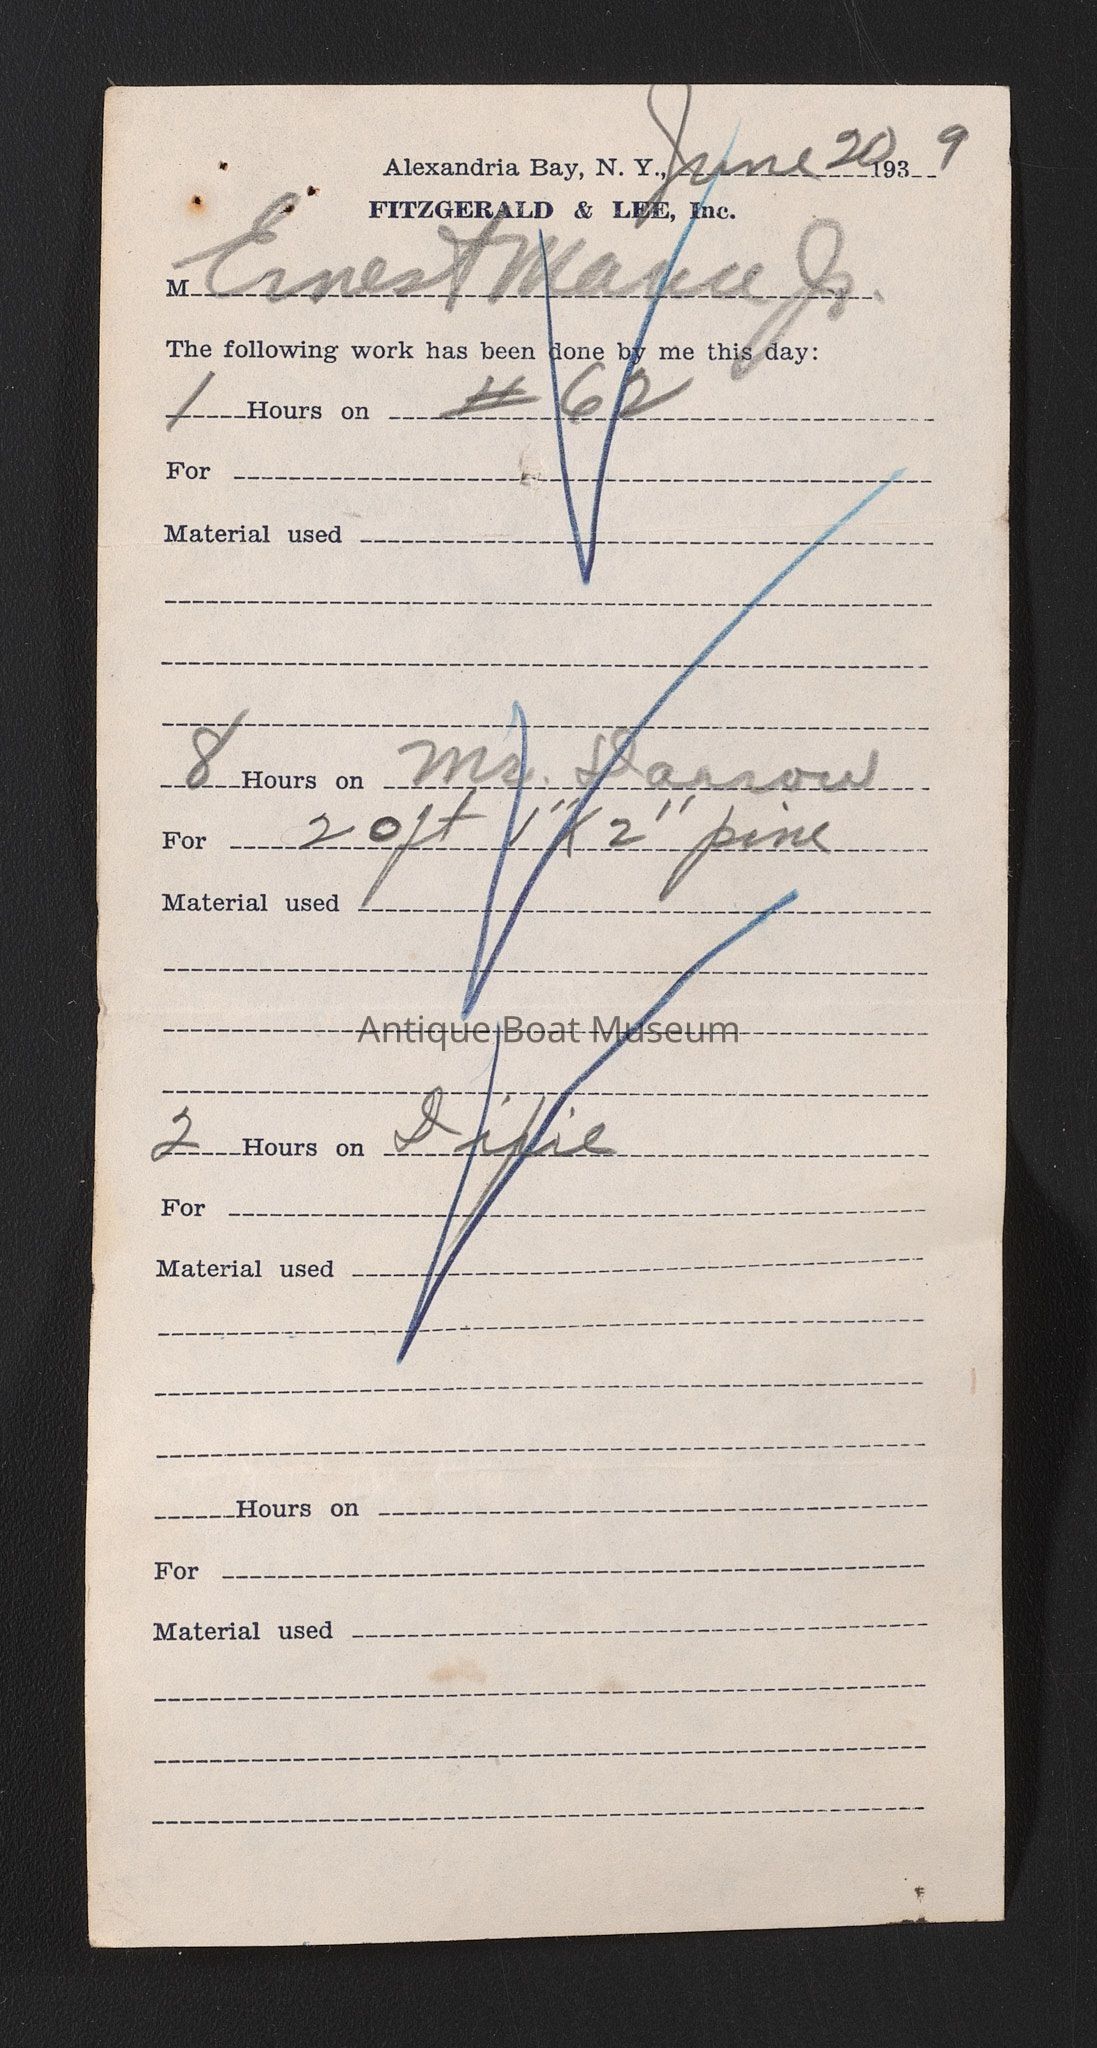 Alexandria Bay, N. Y., June 20 1939
FITZGERALD & LEE, Inc.
M Ernest Jr.
The following work has been done by me this day:
1 Hours on # 62
For
Material used
8 Hours on Mr. Darrow
For 20 ft 1" X 2" pine
Material used
Antique Boat Museum
2 Hours on Dixie
For
Material used
Hours on
For
Material used